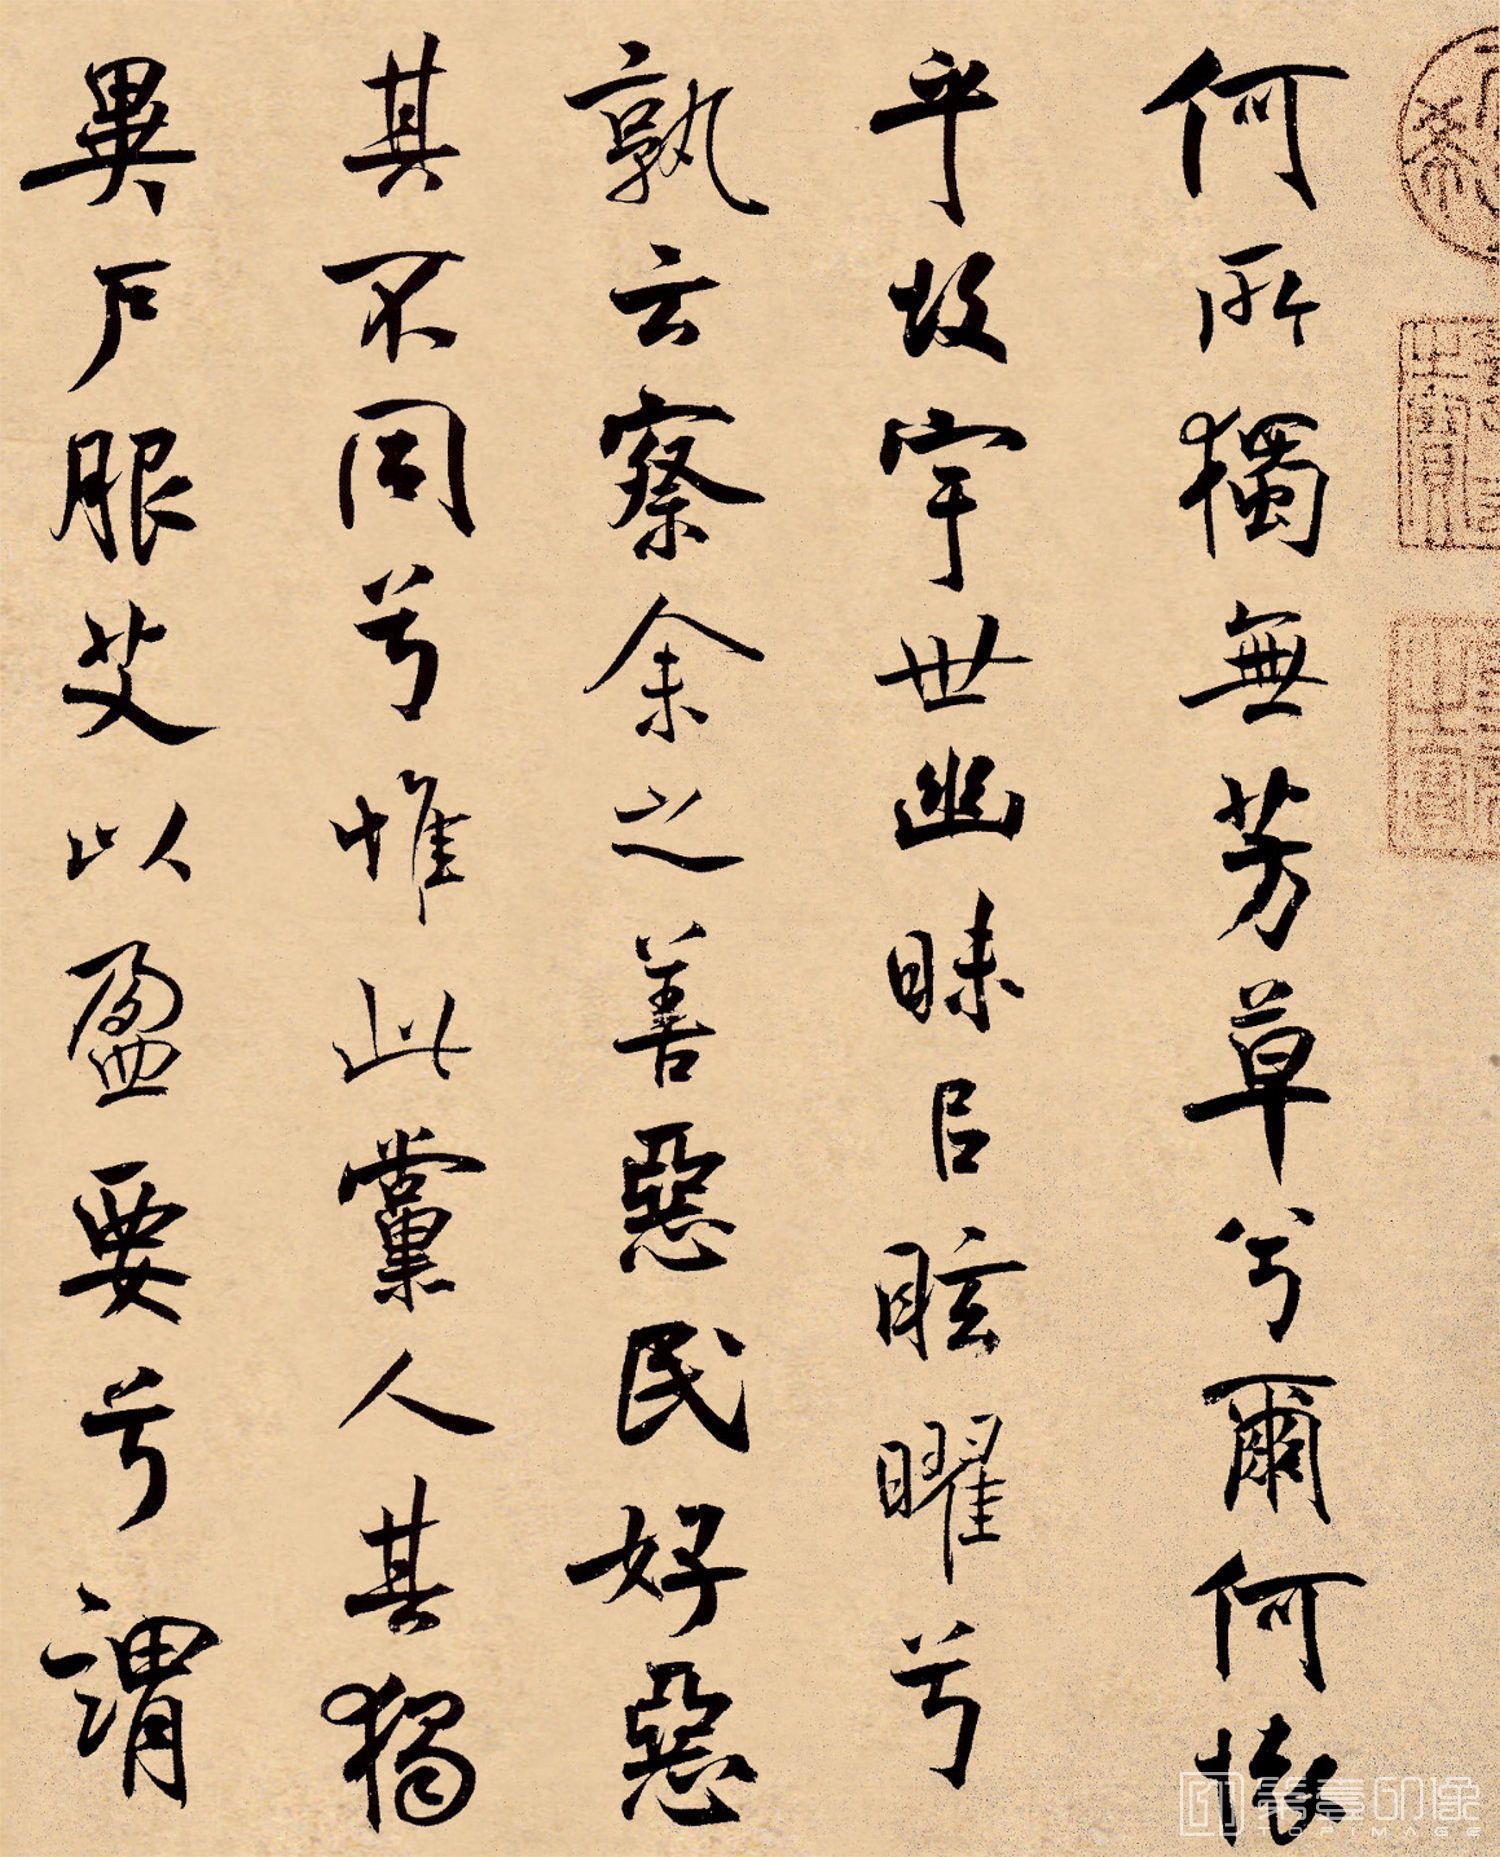 何所獨無芳草兮爾何懷
乎故宇世幽昧㠯眩曜兮
孰云察余之善惡民好惡
其不同兮惟此黨人其獨
異戶服艾以盈要兮謂
TOPIMAGE